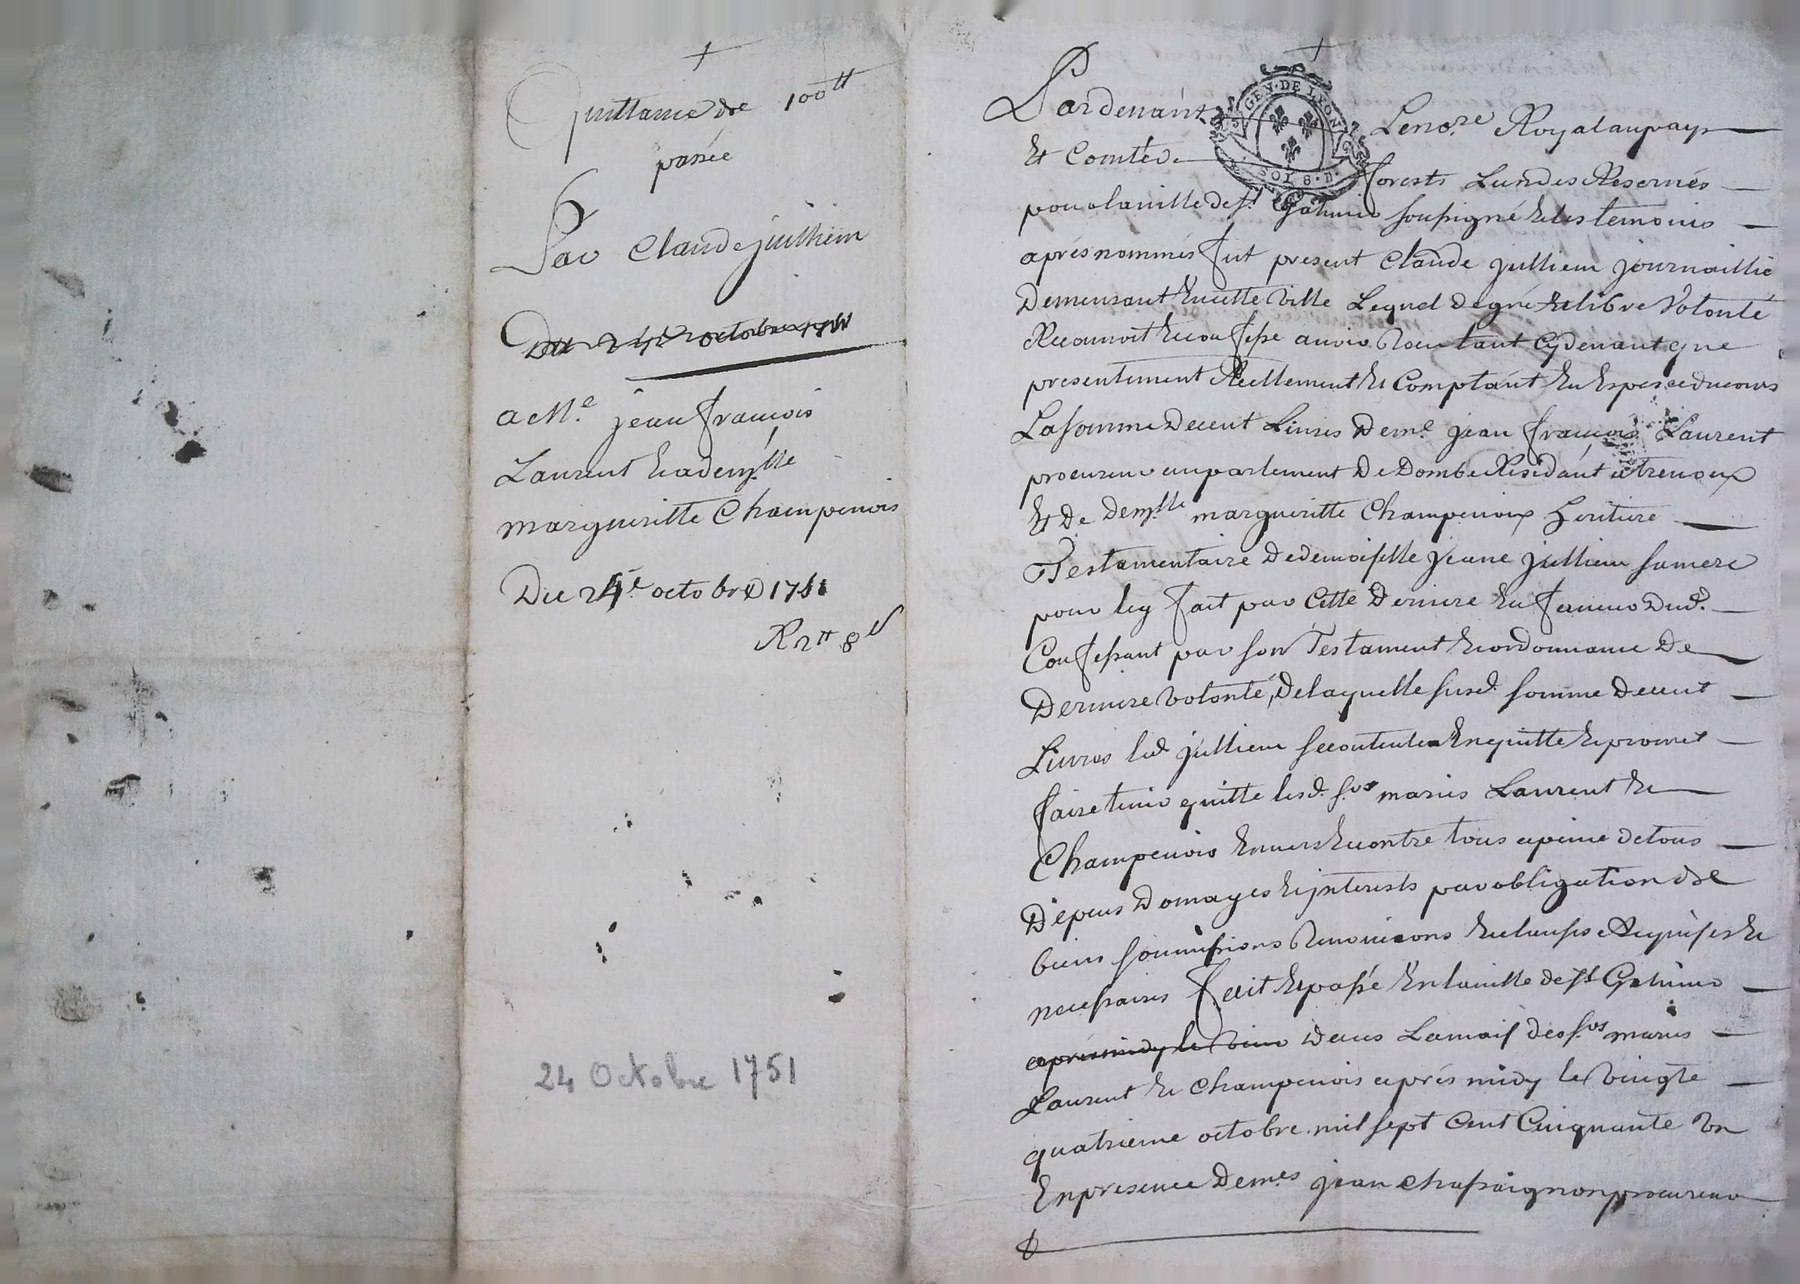 Quittance de 100tt
passée
Par Claude jullien
Du 24e octobre 1751
a Me. jean francois
Laurent et a demlle
margueritte Champenois
Du 24e octobre 1751
R 2tt 8s
24 Octobre 1751
Pardevant Le no.re Royal au pays
GEN. DE LYON
SOLS. D.
Et Comté de forests Lun des Reservés
pour la ville de st. Galmier soussigné et les temoins
aprés nommés fut present Claude jullien journaillie
Demeurant En cette ville Lequel de gré et libre Volonté
Reconnoit et confesse avoir Receu tant cy devant que
presentement Reellement Et Comptant En Espece du cours
La somme De cent Livres De me. jean francois Laurent
procureur au parlement De Dombe Residant a trevoux
Et De demlle margueritte Champenois heritiere
Testamentaire De demoiselle jeane jullien sa mere
pour leg fait par Cette Derniere En faveur Dud.
Confessant par son Testament et ordonnance De
Derniere volonté, De laquelle susd. somme De cent
Livres led. jullien se contente En quitte Et promet
faire tenir quitte lesd. srs mariés Laurent Et
Champenois Envers Et contre tous a peine de tous
Depens Domages Et jnterests par obligation de
biens soumissions Renonciaons Et clauses Requises Et
necessaires fait Et passé En la ville de st Galmier
aprés midy le vin Dans La mais des srs mariés
Laurent Et Champenois aprés midy le vingte
quatrieme octobre mil sept Cent Cinquante Un
En presence De mes jean chassaignon procureur